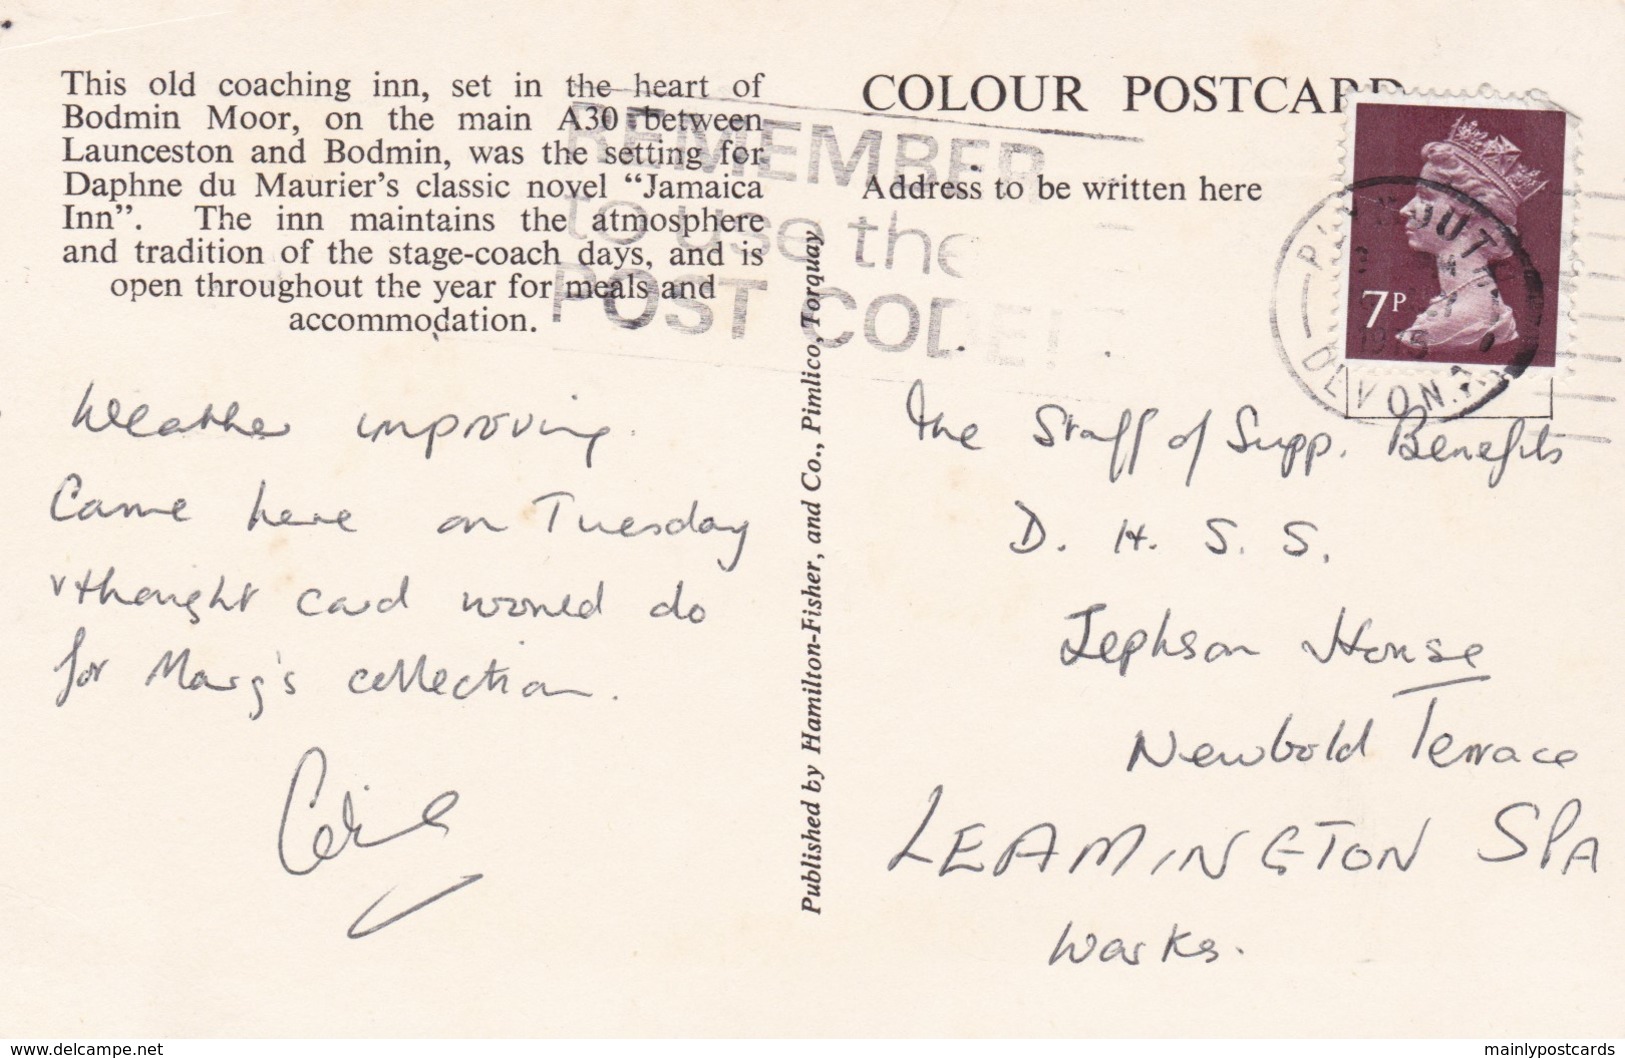 This old coaching inn, set in the heart of
Bodmin Moor, on the main A30 between
Launceston and Bodmin, was the setting for
Daphne du Maurier's classic novel "Jamaica
Inn". The inn maintains the atmosphere
and tradition of the stage-coach days, and is
open throughout the year for meals and
accommodation.
Weather improving.
Came here on Tuesday
+ thought card would do
for Marg's collection.
Published by Hamilton-Fisher, and Co., Pimlico, Torquay
REMEMBER
to use the
POST CODE!
COLOUR POSTCARD
Address to be written here
7P
PLYMOUTH
1975
DEVON.
The Staff of Supp. Benefits
D. H. S. S.
Jephson House
Newbold Terrace
LEAMINGTON SPA
Warks.
www.delcampe.net
mainlypostcards